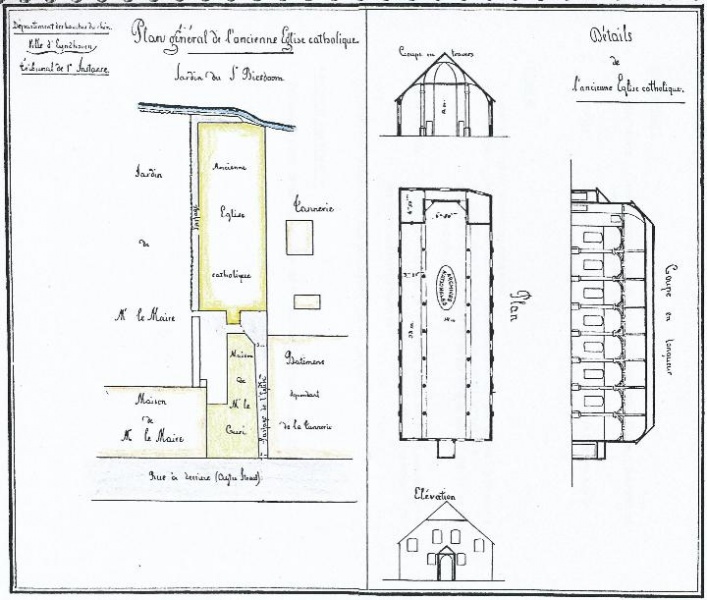 Département des bouches du rhin.
Ville d'Eyndhoven
Tribunal de 1re Instance.
Plan général de l'ancienne Eglise catholique.
Jardin du Sr Biesboom
Jardin
de
Mr le Maire
Passage
Ancienne
Eglise
catholique
Tannerie
Maison
de
Mr le Maire
Maison
de
Mr le
Curé
Passage de l'Eglise
Batimens
dépendant
de la Tannerie
Rue à derriere
Coupe en travers
Détails
de
l'ancienne Eglise catholique.
ARCHIVES
NATIONALES
Plan
Coupe en longueur
Elévation